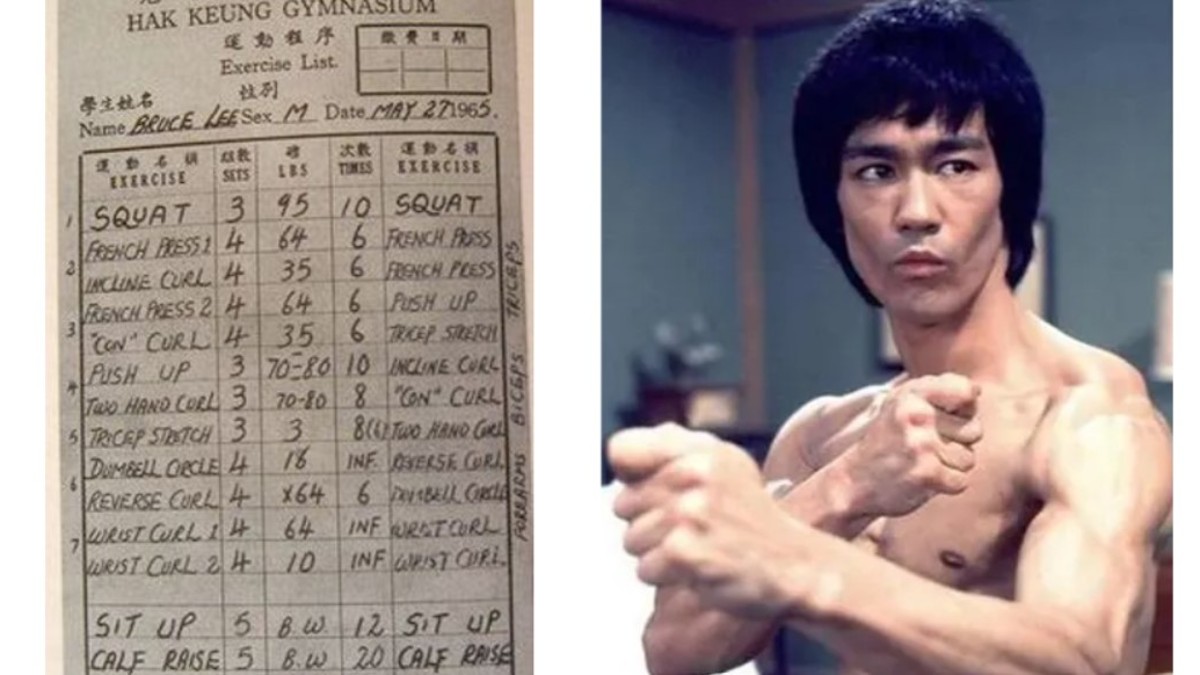 HAK KEUNG GYMNASIUM
運動程序
Exercise List.
繳費日期
學生姓名 性別
Name BRUCE LEE Sex M Date MAY 27 1965.
運動名稱 組數 磅 次數 運動名稱
EXERCISE SETS LBS TIMES EXERCISE
1 SQUAT 3 95 10 SQUAT
FRENCH PRESS 1 4 64 6 FRENCH PRESS
2 INCLINE CURL 4 35 6 FRENCH PRESS
FRENCH PRESS 2 4 64 6 PUSH UP
3 "CON" CURL 4 35 6 TRICEP STRETCH
PUSH UP 3 70-80 10 INCLINE CURL
4 TWO HAND CURL 3 70-80 8 "CON" CURL
5 TRICEP STRETCH 3 3 8(6) TWO HAND CURL
DUMBELL CIRCLE 4 16 INF. REVERSE CURL
6 REVERSE CURL 4 x64 6 DUMBELL CIRCLE
WRIST CURL 1 4 64 INF WRIST CURL
7 WRIST CURL 2 4 10 INF WRIST CURL
SIT UP 5 B.W. 12 SIT UP
CALF RAISE 5 B.W 20 CALF RAISE
TRICEPS
BICEPS
FOREARMS